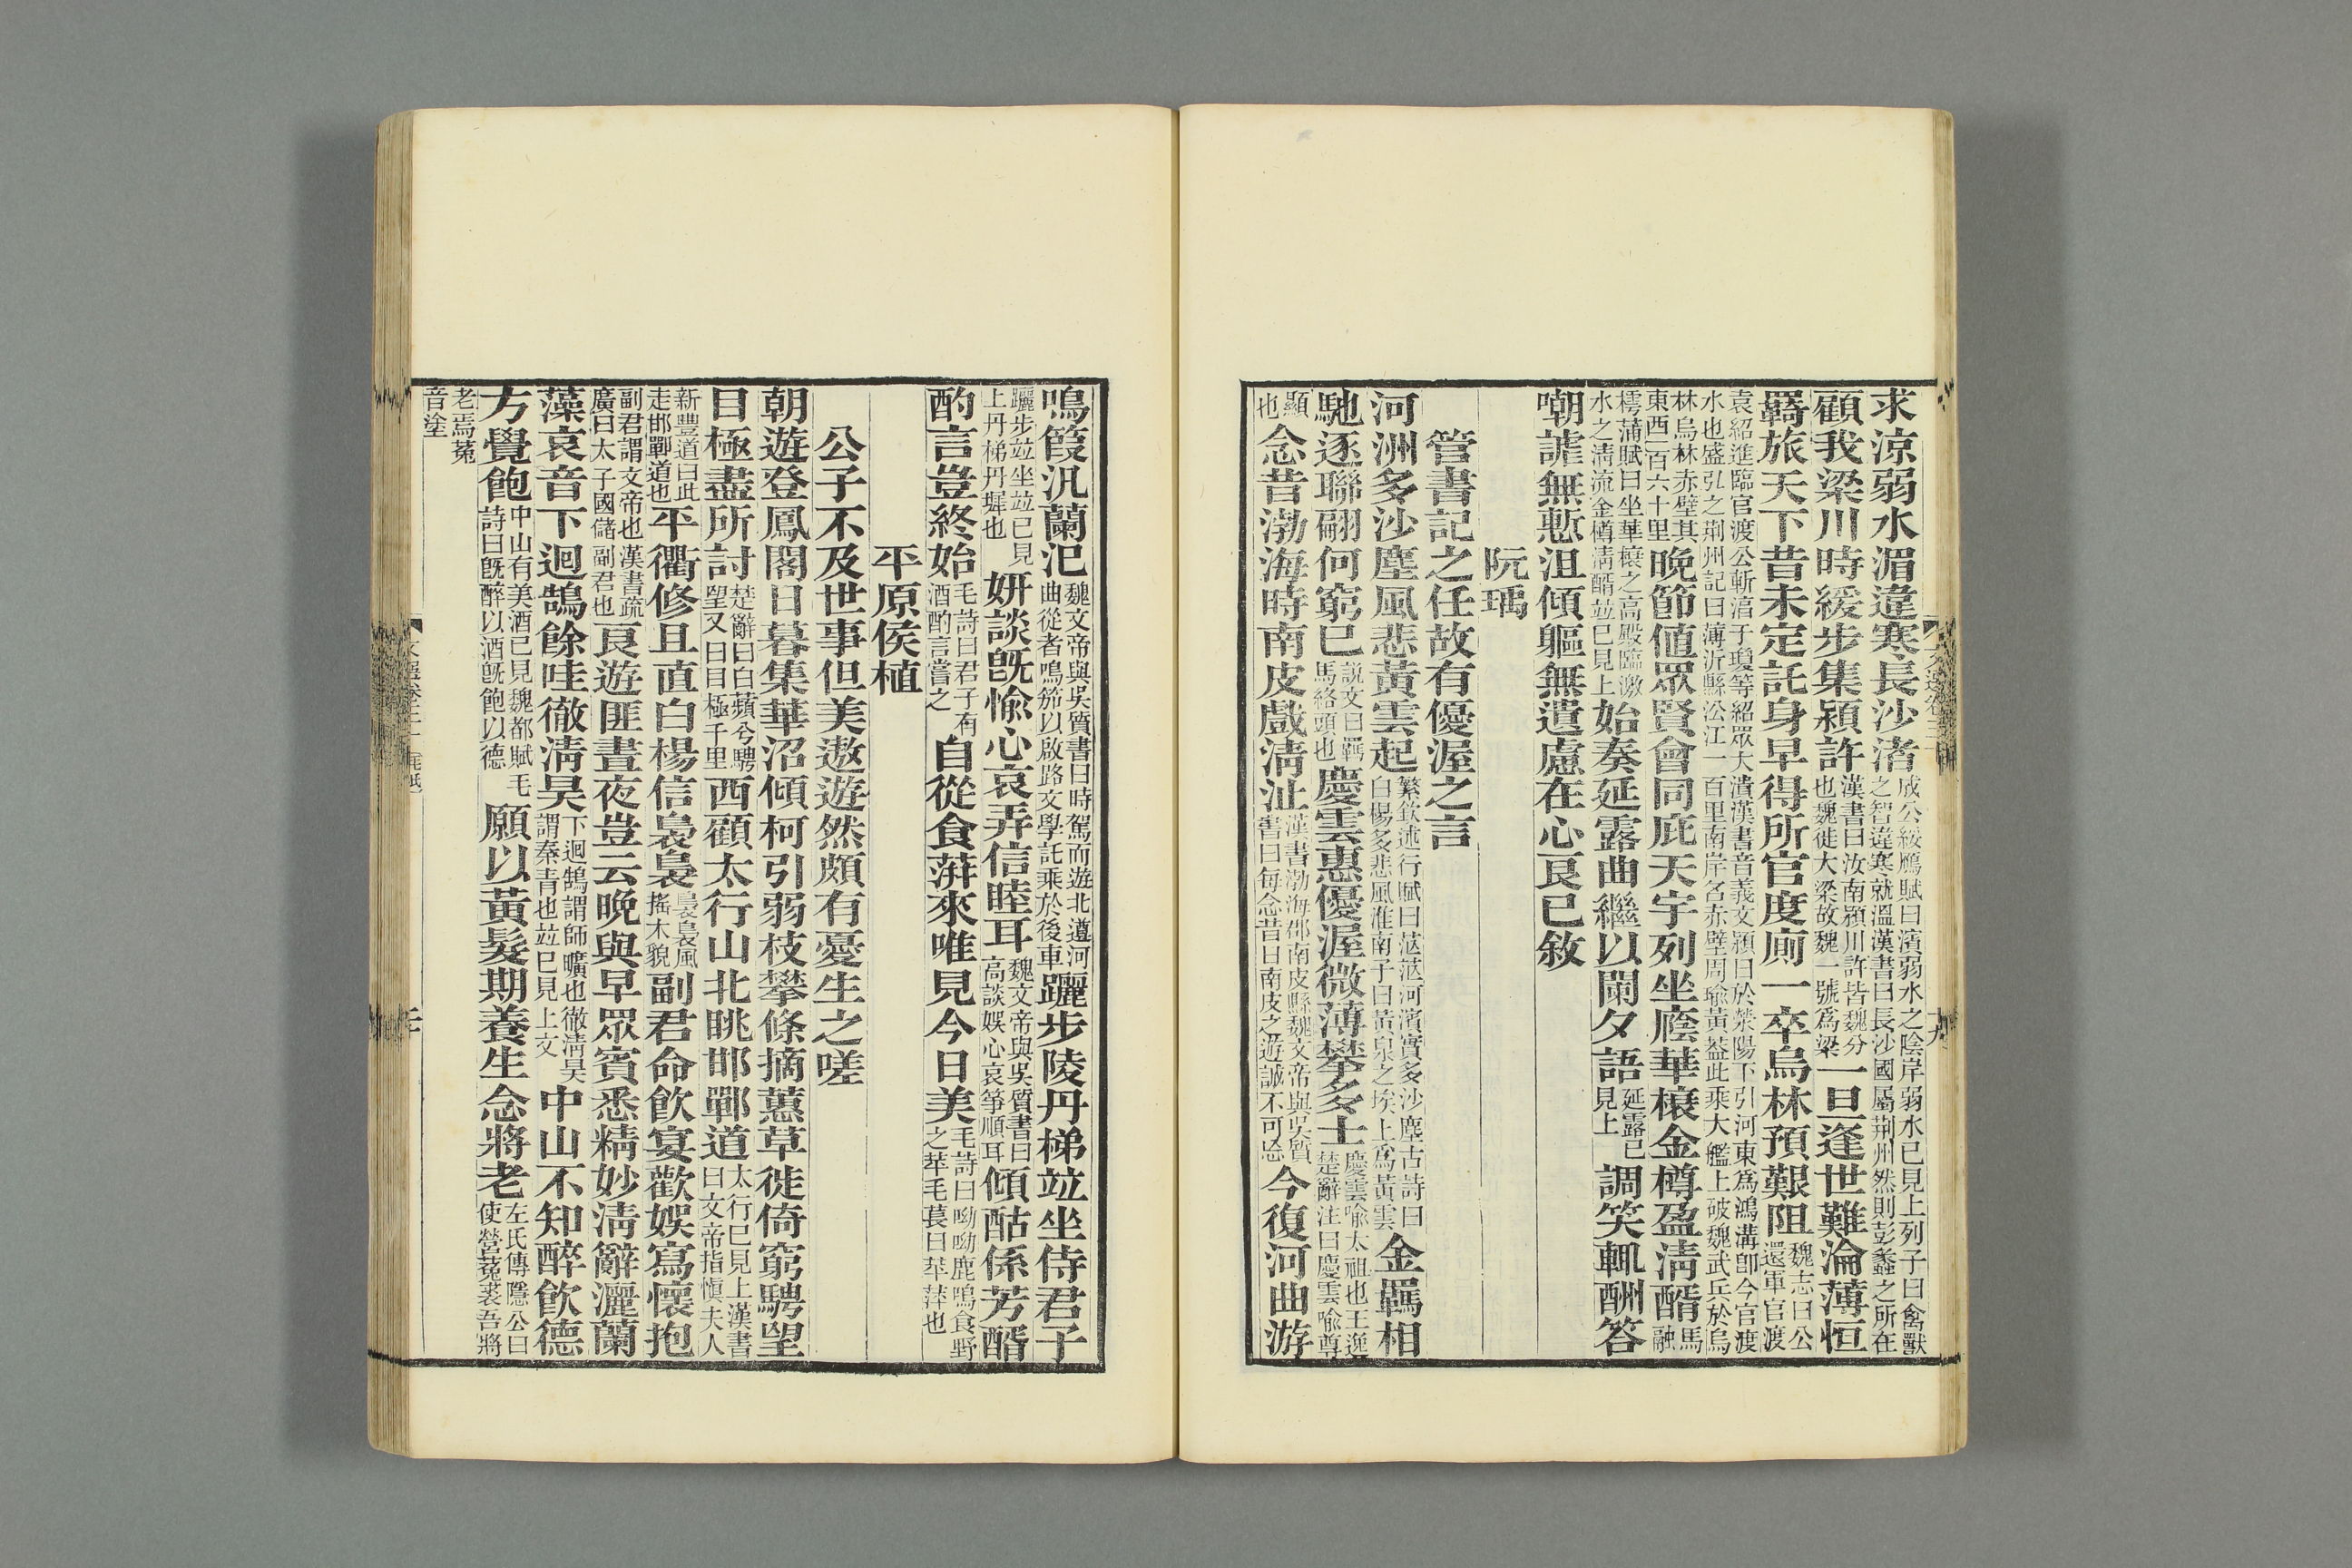 求涼弱水湄違寒長沙渚成公綏鴈賦曰濱弱水之陰岸弱水已見上列子曰禽獸之智違寒就溫漢書曰長沙國屬荆州然則彭蠡之所在
顧我梁川時緩步集潁許漢書曰汝南潁川許皆魏分也魏徙大梁故魏一號爲梁一旦逢世難淪薄恒
羇旅天下昔未定託身早得所官度廁一卒烏林預艱阻魏志曰公還軍官渡
袁紹進臨官渡公斬淊于瓊等紹眾大潰漢書音義文潁曰於滎陽下引河東爲鴻溝卽今官渡水也盛弘之荆州記曰薄沂縣㳂江一百里南岸名赤壁周瑜黃葢此乘大艦上破魏武兵於烏
林烏林赤壁其東西一百六十里晚節値眾賢會同庇天宇列坐廕華榱金樽盈淸醑馬融
樗蒲賦曰坐華榱之高殿臨激水之淸流金樽淸醑竝已見上始奏延露曲繼以闌夕語延露已見上調笑輒酬答
嘲謔無慙沮傾軀無遺慮在心良已敘
阮瑀
管書記之任故有優渥之言
河洲多沙塵風悲黃雲起繁欽述行賦曰茫茫河濱實多沙塵古詩曰白楊多悲風淮南子曰黃泉之埃上爲黃雲金羈相
馳逐聯翩何窮已說文曰羈馬絡頭也慶雲惠優渥微薄攀多士慶雲喻太祖也王逸楚辭注曰慶雲喻尊
顯也念昔渤海時南皮戲淸沚漢書渤海郡南皮縣魏文帝與吳質書曰每念昔日南皮之遊誠不可忘今復河曲游
鳴葭汎蘭汜魏文帝與吳質書曰時駕而遊北遵河曲從者鳴笳以啟路文學託乘於後車躧步陵丹梯竝坐侍君子
躧步竝坐竝已見上丹梯丹墀也妍談旣愉心哀弄信睦耳魏文帝與吳質書曰高談娛心哀箏順耳傾酤係芳醑
酌言豈終始毛詩曰君子有酒酌言嘗之自從食蓱來唯見今日美毛詩曰呦呦鹿鳴食野之苹毛萇曰苹蓱也
平原侯植
公子不及世事但美遨遊然頗有憂生之嗟
朝遊登鳳閣日暮集華沼傾柯引弱枝攀條摘蕙草徙倚窮騁望
目極盡所討楚辭曰白蘋兮騁望又曰目極千里西顧太行山北眺邯鄲道太行已見上漢書曰文帝指愼夫人
新豐道曰此走邯鄲道也平衢修且直白楊信裊裊裊裊風搖木貌副君命飮宴歡娛寫懷抱
副君謂文帝也漢書疏廣曰太子國儲副君也良遊匪晝夜豈云晚與早眾賓悉精妙淸辭灑蘭
藻哀音下迴鵠餘哇徹淸昊下迴鵠謂師曠也徹淸昊謂秦青也竝已見上文中山不知醉飮德
方覺飽中山有美酒已見魏都賦毛詩曰旣醉以酒旣飽以德願以黃髮期養生念將老左氏傳隱公曰使營菟裘吾將
老焉菟音塗